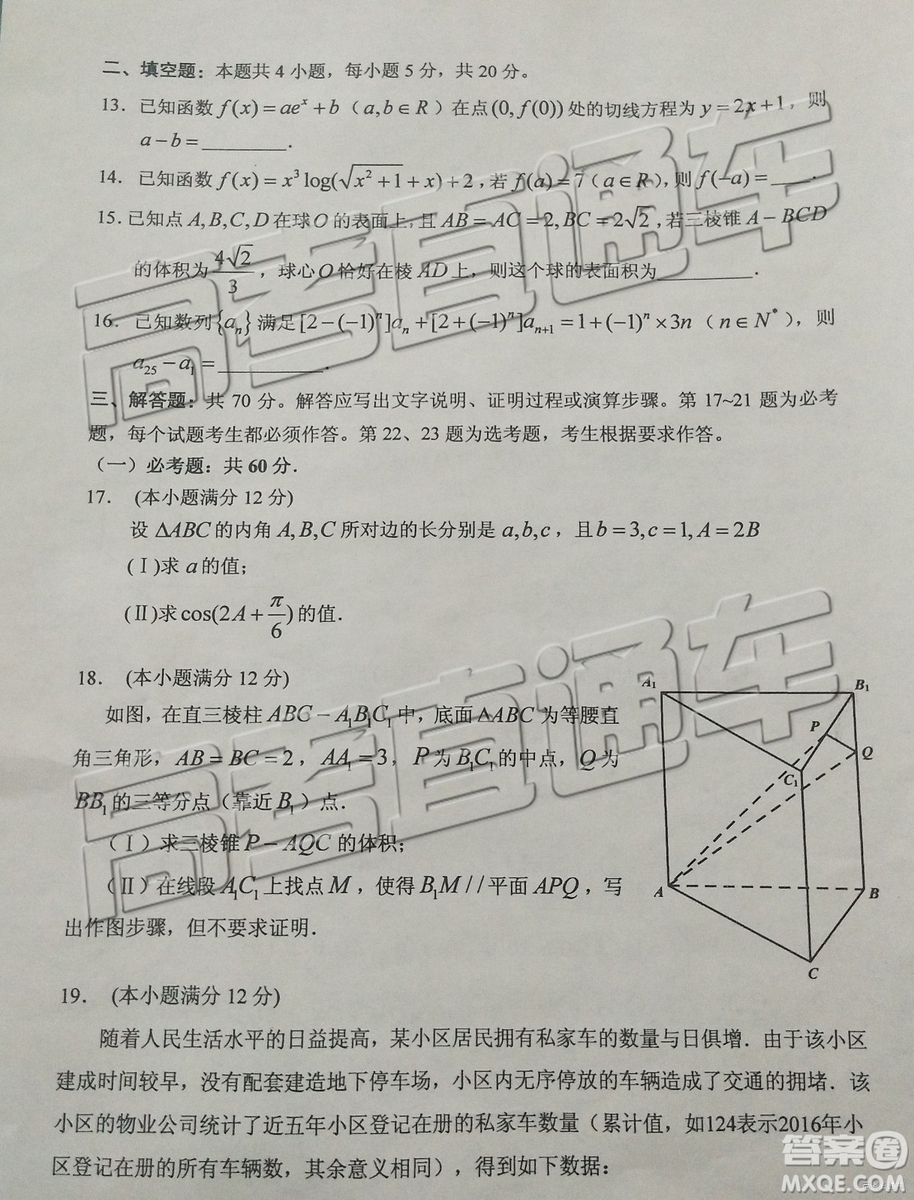 二、填空题：本题共 4 小题，每小题 5 分，共 20 分。
13．已知函数 f(x)=ae^x+b（a,b∈R）在点(0, f(0)) 处的切线方程为 y=2x+1，则
a-b=________.
14．已知函数 f(x)=x^3 log(√(x^2+1)+x)+2，若 f(a)=7（a∈R），则 f(-a)=____.
15．已知点 A,B,C,D 在球 O 的表面上，且 AB=AC=2,BC=2√2，若三棱锥 A-BCD
的体积为 4√2/3，球心 O 恰好在棱 AD 上，则这个球的表面积为________.
16．已知数列{a_n}满足[2-(-1)^n]a_n+[2+(-1)^n]a_{n+1}=1+(-1)^n×3n（n∈N^*），则
a_25-a_1=________.
三、解答题：共 70 分。解答应写出文字说明、证明过程或演算步骤。第 17~21 题为必考
题，每个试题考生都必须作答。第 22、23 题为选考题，考生根据要求作答。
（一）必考题：共 60 分．
17． (本小题满分 12 分)
设 △ABC 的内角 A,B,C 所对边的长分别是 a,b,c，且 b=3,c=1,A=2B
(Ⅰ)求 a 的值；
(Ⅱ)求 cos(2A+π/6) 的值．
18． (本小题满分 12 分)
如图，在直三棱柱 ABC-A₁B₁C₁ 中，底面 △ABC 为等腰直
角三角形，AB=BC=2，AA₁=3，P 为 B₁C₁ 的中点，Q 为
BB₁ 的三等分点（靠近 B₁）点．
（Ⅰ）求三棱锥 P-AQC 的体积；
（Ⅱ）在线段 A₁C₁ 上找点 M，使得 B₁M//平面 APQ，写
出作图步骤，但不要求证明．
A₁
B₁
P
Q
C₁
A
B
C
19． (本小题满分 12 分)
随着人民生活水平的日益提高，某小区居民拥有私家车的数量与日俱增．由于该小区
建成时间较早，没有配套建造地下停车场，小区内无序停放的车辆造成了交通的拥堵．该
小区的物业公司统计了近五年小区登记在册的私家车数量（累计值，如124表示2016年小
区登记在册的所有车辆数，其余意义相同），得到如下数据：
高考直通车
高考直通车
答案圈
MXQE.COM